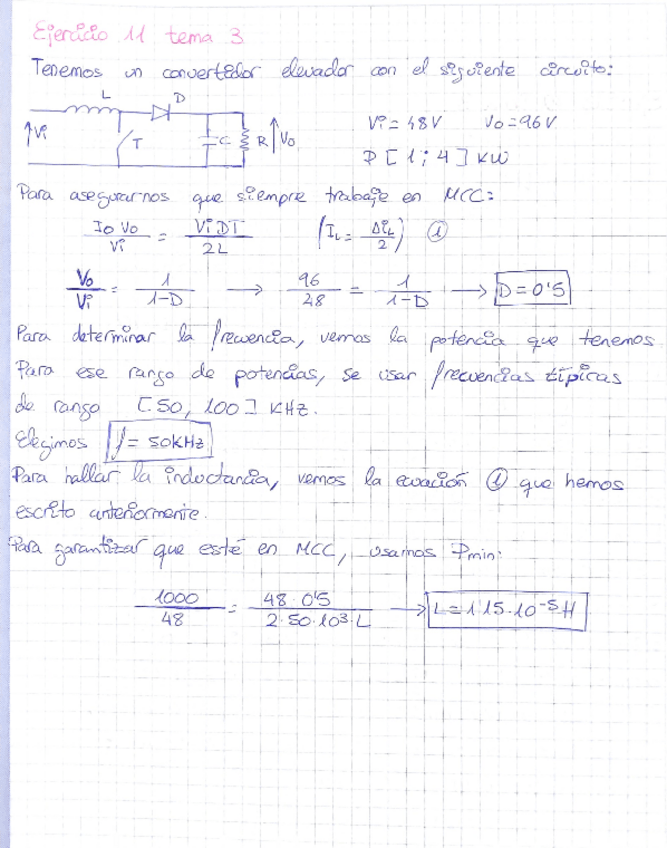 Ejercicio 11 tema 3
Tenemos un convertidor elevador con el siguiente circuito:
L D
Vi T C R Vo
Vi = 48V Vo = 96V
P [1 ; 4] kW
Para asegurarnos que siempre trabaje en MCC:
Io Vo / Vi = Vi DT / 2L (IL = ΔiL / 2) ①
Vo / Vi = 1 / 1-D → 96 / 48 = 1 / 1-D → D = 0'5
Para determinar la frecuencia, vemos la potencia que tenemos
Para ese rango de potencias, se usar frecuencias típicas
de rango [50, 100] KHz.
Elegimos f = 50KHz
Para hallar la inductancia, vemos la ecuación ① que hemos
escrito anteriormente.
Para garantizar que esté en MCC, usamos Pmin:
1000 / 48 = 48·0'5 / 2·50·10³·L → L = 1'15·10⁻⁵ H